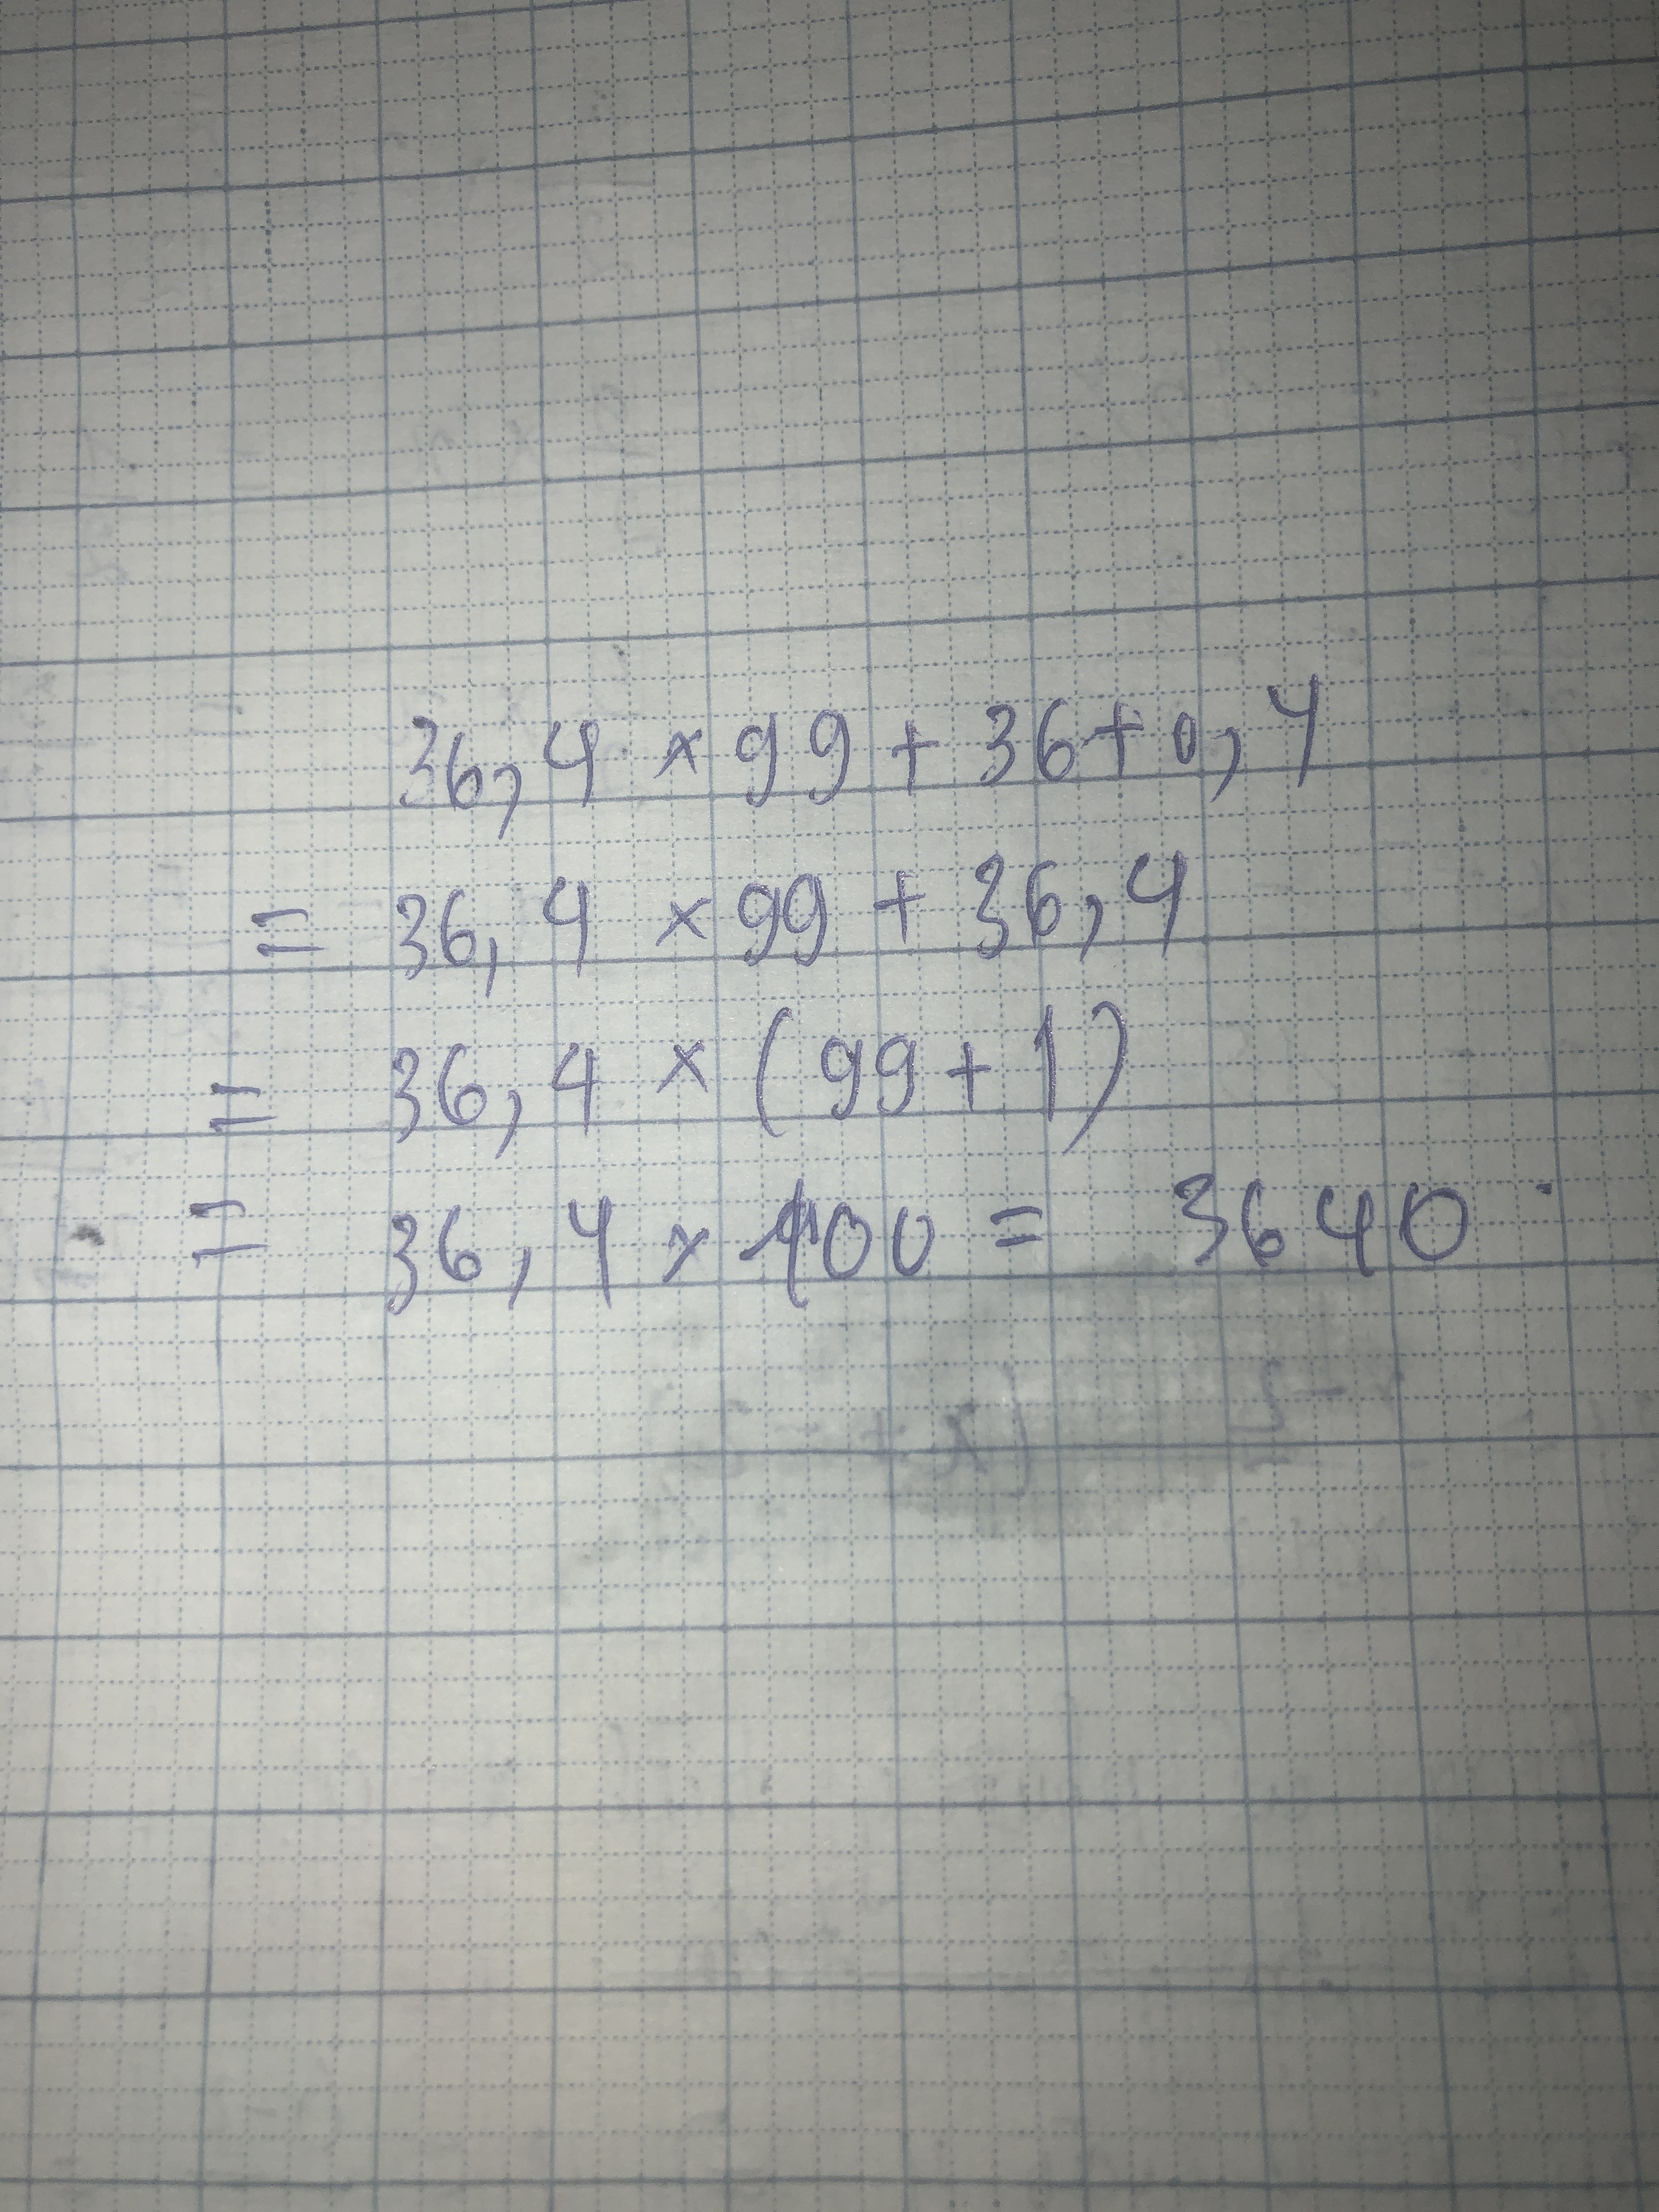 36,4 × 99 + 36 + 0,4
= 36,4 × 99 + 36,4
= 36,4 × (99 + 1)
= 36,4 × 100 = 3640